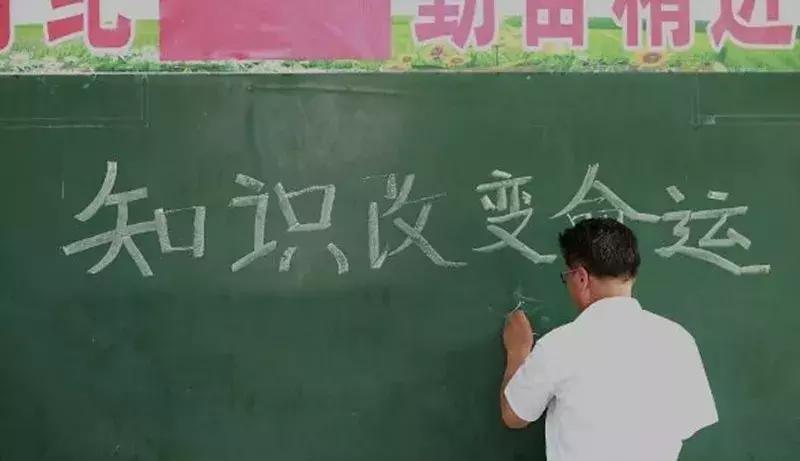 纪 勤奋 精
知识改变命运